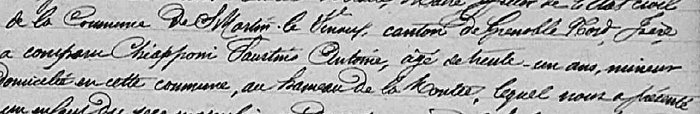 de l'état civil
de la Commune de St Martin-le Vinoux, canton de Grenoble Nord, Isère
a comparu Chiapponi Faustino Antoine, âgé de trente-un ans, mineur
domicilié en cette commune, au hameau de la Monta, lequel nous a présenté
un enfant du sexe masculin